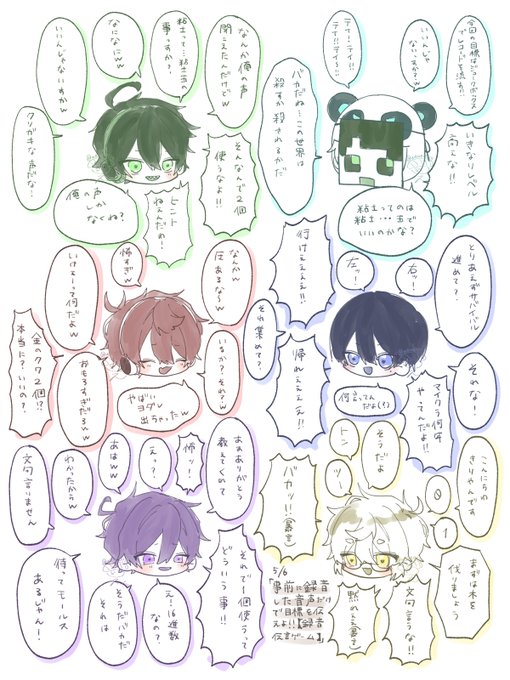 今回の目標はジュークボックス
でレコードを流す!!
いいんじゃ
ないですか?
テテ!テイ!!
テテ!!テイ!!
いきなりレベル
高ぇな!!
バカだね…この世界は
殺すか殺されるかだ
粘土ってのは
粘土…まで
いいのかな?
なんか俺の声
聞こえたんだけどw
粘土って…粘土の
事っすか?
なになにww
いいんじゃないすかw
クソガキな声だな!
そんなんで2個
使うなよ!!
ヒント
ねぇんだわ!
俺の声
しか
なくね?
とりあえずサバイバル
進めて?
右ッ!
左ッ!
行けぇぇぇぇ!!
それ集めて?
それな!
マイクラ何年
やってんだよ!!
何言ってん
だよ(?)
帰れぇぇぇぇ!!
なんかw
圧あるな〜w
怖すぎw
いけぇーって何だよw
いるか?それ?w
やばい
ヨダレ
出ちゃったw
おもろすぎだろw
金のクワ2個!?
本当に?いいの?
こんにちの
きりやんです
0
1
まずは木を
伐りましょう
そうだよ
トン
ツー
バカッ!!(裏声)
文句言うな!!
黙れぇ(裏声)
5/6
「事前に録音
した音声だけ
で目標を伝
えよ!!【録音
伝言ゲーム】」
あぁありがとう
教えてくれて
怖ッ!
えっ?
あはww
わかったからw
文句言りません
それで1個使うって
どういう事!!
え!16進数
なの?
そうだバカだ
それは
待ってモールス
あるじゃん!